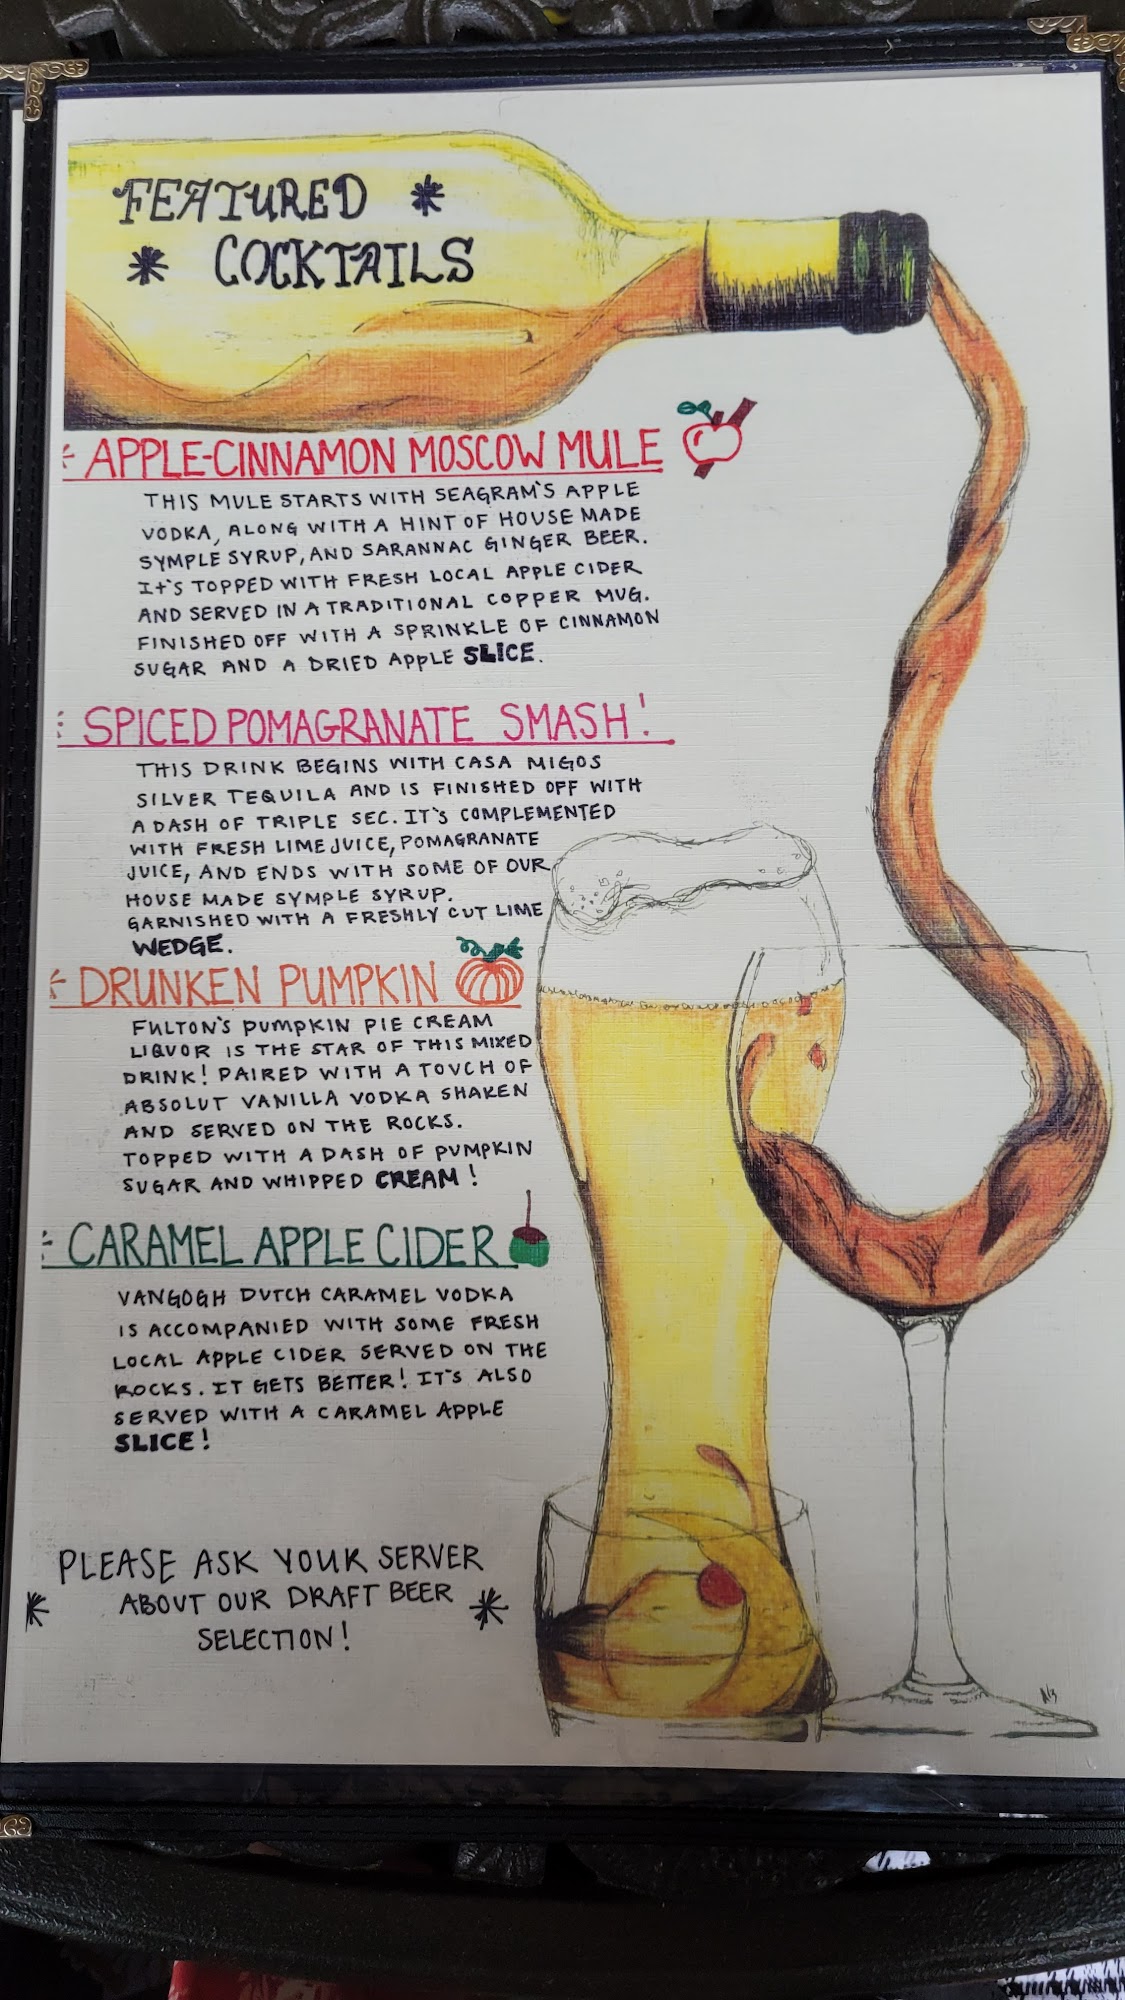 FEATURED *
* COCKTAILS
APPLE-CINNAMON MOSCOW MULE
THIS MULE STARTS WITH SEAGRAM'S APPLE
VODKA, ALONG WITH A HINT OF HOUSE MADE
SYMPLE SYRUP, AND SARANNAC GINGER BEER.
It'S TOPPED WITH FRESH LOCAL APPLE CIDER
AND SERVED IN A TRADITIONAL COPPER MUG.
FINISHED OFF WITH A SPRINKLE OF CINNAMON
SUGAR AND A DRIED APPLE SLICE.
SPICED POMAGRANATE SMASH!
THIS DRINK BEGINS WITH CASA MIGOS
SILVER TEQUILA AND IS FINISHED OFF WITH
A DASH OF TRIPLE SEC. IT'S COMPLEMENTED
WITH FRESH LIME JUICE, POMAGRANATE
JUICE, AND ENDS WITH SOME OF OUR
HOUSE MADE SYMPLE SYRUP.
GARNISHED WITH A FRESHLY CUT LIME
WEDGE.
DRUNKEN PUMPKIN
FULTON'S PUMPKIN PIE CREAM
LIQVOR IS THE STAR OF THIS MIXED
DRINK! PAIRED WITH A TOUCH OF
ABSOLUT VANILLA VODKA SHAKEN
AND SERVED ON THE ROCKS.
TOPPED WITH A DASH OF PUMPKIN
SUGAR AND WHIPPED CREAM!
CARAMEL APPLE CIDER
VANGOGH DUTCH CARAMEL VODKA
IS ACCOMPANIED WITH SOME FRESH
LOCAL APPLE CIDER SERVED ON THE
ROCKS. IT GETS BETTER! IT'S ALSO
SERVED WITH A CARAMEL APPLE
SLICE!
PLEASE ASK YOUR SERVER
* ABOUT OUR DRAFT BEER *
SELECTION!